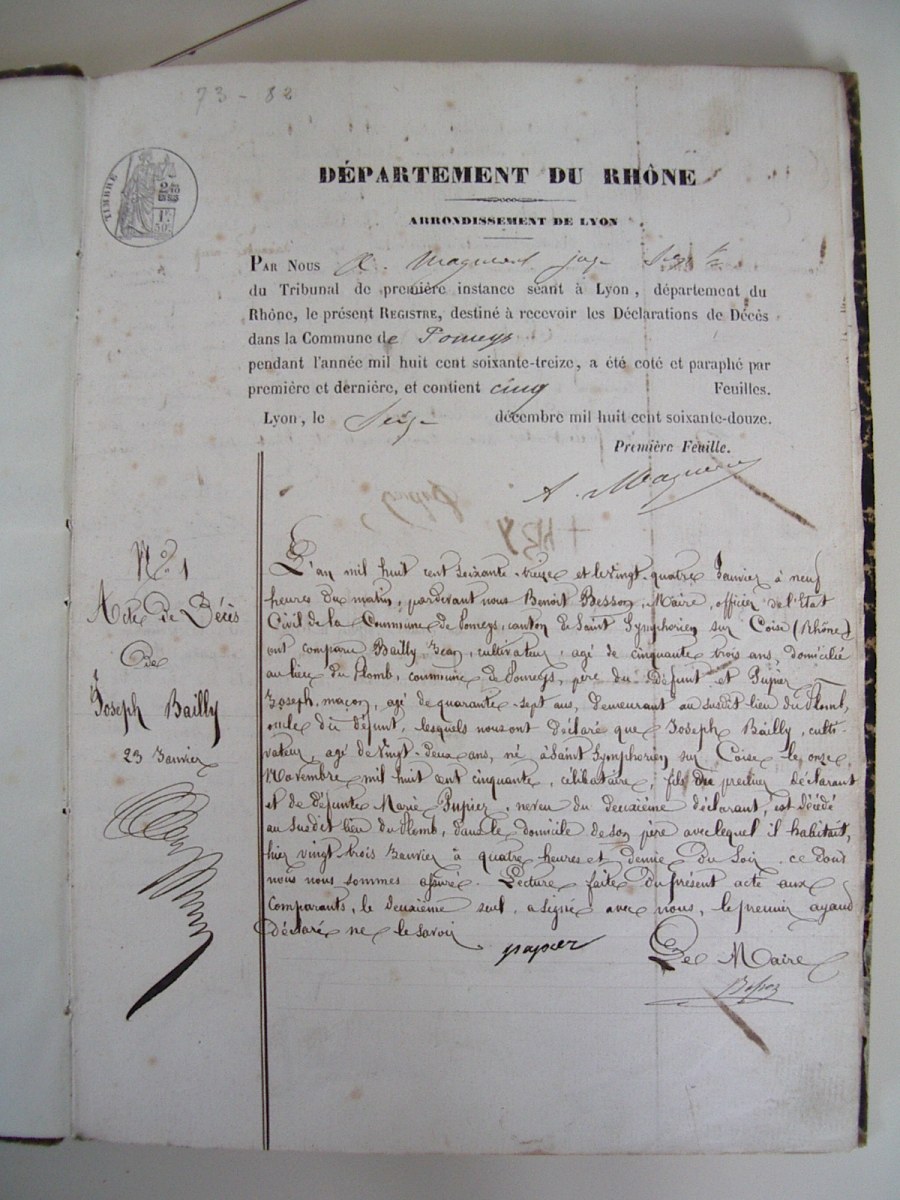 73 - 82
TIMBRE
DÉPARTEMENT DU RHÔNE
ARRONDISSEMENT DE LYON
PAR NOUS A. Magneval juge
du Tribunal de première instance séant à Lyon, département du
Rhône, le présent REGISTRE, destiné à recevoir les Déclarations de Décès
dans la Commune de Pomeys
pendant l'année mil huit cent soixante-treize, a été coté et paraphé par
première et dernière, et contient cinq Feuilles.
Lyon, le Seize décembre mil huit cent soixante-douze.
Première Feuille.
N° 1
Acte de Décès
de
Joseph Bailly
23 Janvier
L'an mil huit cent soixante-treize et le vingt-quatre Janvier à neuf
heures du matin, pardevant nous Benoît Besson, Maire, officier de l'Etat
Civil de la Commune de Pomeys, canton de Saint Symphorien sur Coise (Rhône)
ont comparu Bailly Jean, cultivateur, agé de cinquante trois ans, domicilié
au lieu du Plomb, commune de Pomeys, père du défunt et Pupier
Joseph, maçon, agé de quarante-sept ans, demeurant au susdit lieu du Plomb,
oncle du défunt, lesquels nous ont déclaré que Joseph Bailly, culti-
vateur, agé de vingt-deux ans, né à Saint Symphorien sur Coise le onze
Novembre mil huit cent cinquante, célibataire, fils du premier déclarant
et de défunte Marie Pupier, neveu du deuxième déclarant, est décédé
au susdit lieu du Plomb, dans le domicile de son père avec lequel il habitait,
hier vingt trois Janvier à quatre heures et demie du Soir. ce dont
nous nous sommes assuré. Lecture faite du présent acte aux
Comparants, le deuxième seul, a signé avec nous, le premier ayant
déclaré ne le savoir
pupier
Le Maire
Besson